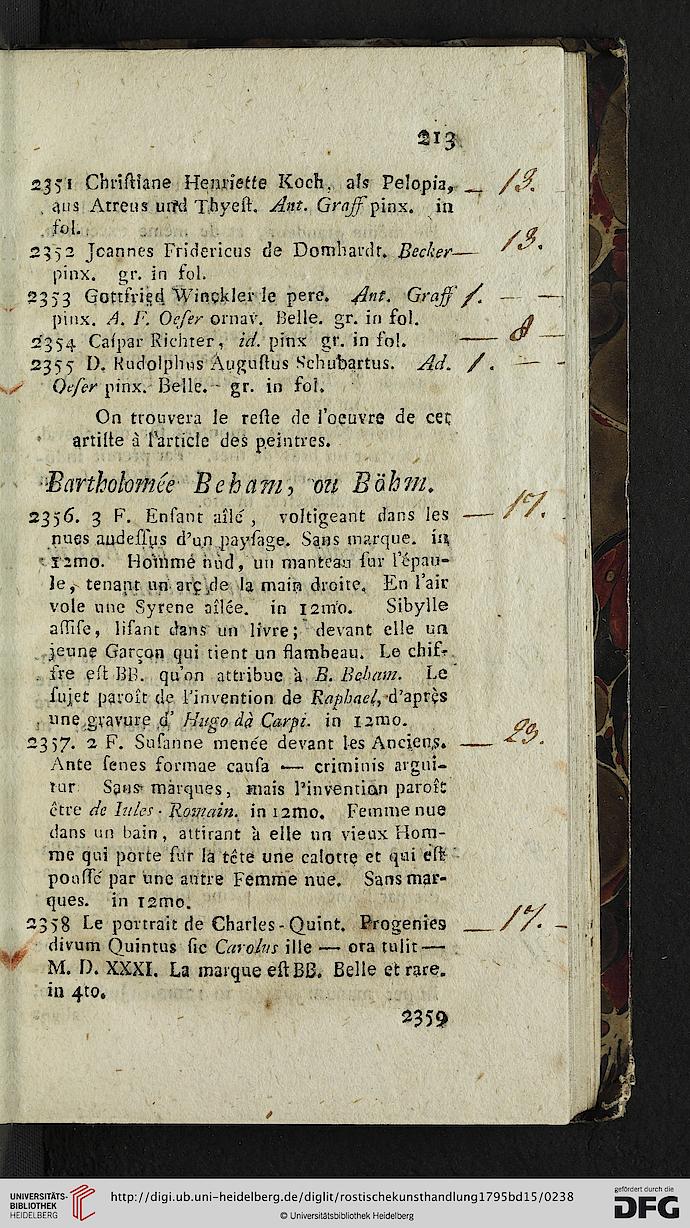 213
2351 Chriſtiane Henriette Koch, als Pelopia, — 13. —
aus Atreus und Thyeſt. Ant. Graff pinx. in
fol.
2352 Joannes Fridericus de Domhardt. Becker — 13. —
pinx. gr. in fol.
2353 Gottfried Winckler le pere. Ant. Graff 1. — —
pinx. A. F. Oeſer ornav. Belle. gr. in fol.
2354 Caſpar Richter, id. pinx gr. in fol. — 8 —
2355 D. Rudolphus Auguſtus Schubartus. Ad. 1. — —
Oeſer pinx. Belle. gr. in fol.
On trouvera le reſte de l'oeuvre de cet
artiſte à l'article des peintres.
Bartholomée Beham, ou Böhm.
2356. 3 F. Enfant aîlé, voltigeant dans les — 17. —
nues audeſſus d'un payſage. Sans marque. in
12mo. Hommé nud, un manteau ſur l'épau-
le, tenant un arc de la main droite. En l'air
vole une Syrene aîlée. in 12mo. Sibylle
aſſiſe, liſant dans un livre; devant elle un
jeune Garçon qui tient un flambeau. Le chif-
fre eſt BB. qu'on attribue à B. Beham. Le
ſujet paroît de l'invention de Raphael, d'après
une gravure d' Hugo dà Carpi. in 12mo.
2357. 2 F. Suſanne menée devant les Anciens. — 23. —
Ante ſenes formae cauſa — criminis argui-
tur Sans marques, mais l'invention paroît
être de Iules - Romain. in 12mo. Femme nue
dans un bain, attirant à elle un vieux Hom-
me qui porte ſur la tête une calotte et qui eſt
pouſſé par une autre Femme nue. Sans mar-
ques. in 12mo.
2358 Le portrait de Charles-Quint. Progenies — 17. —
divum Quintus ſic Carolus ille — ora tulit —
M. D. XXXI. La marque eſt BB. Belle et rare.
in 4to.
2359
UNIVERSITÄTS-
BIBLIOTHEK
HEIDELBERG
http://digi.ub.uni-heidelberg.de/diglit/rostischekunsthandlung1795bd15/0238
© Universitätsbibliothek Heidelberg
gefördert durch die
DFG